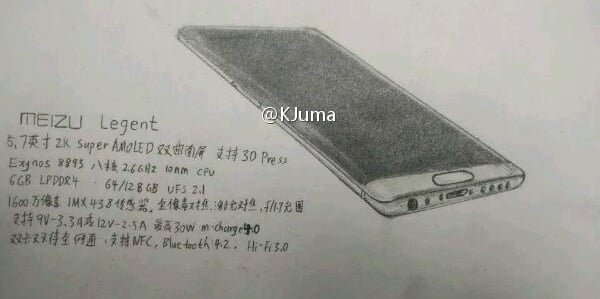 @KJuma
MEIZU Legent
5.7英寸2K Super AMOLED 双曲面屏 支持3D Press
Exynos 8893 八核 2.6GHz 10nm CPU
6GB LPDDR4 · 64/128GB UFS 2.1
1600万像素 IMX438传感器, 全像素对焦, 激光对焦, f/1.7光圈
支持9V-3.3A或12V-2.5A 最高30W m-charge4.0
双卡双待全网通, 支持NFC, Bluetooth 4.2, Hi-Fi3.0